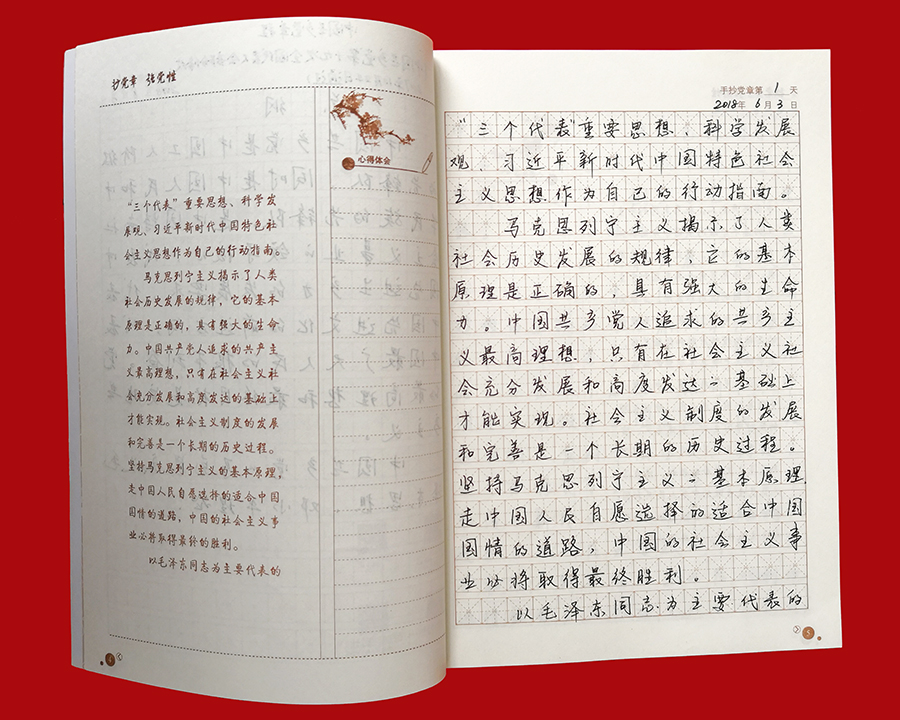 抄党章 强党性
心得体会
“三个代表”重要思想、科学发
展观、习近平新时代中国特色社
会主义思想作为自己的行动指南。
马克思列宁主义揭示了人类
社会历史发展的规律，它的基本
原理是正确的，具有强大的生命
力。中国共产党人追求的共产主
义最高理想，只有在社会主义社
会充分发展和高度发达的基础上
才能实现。社会主义制度的发展
和完善是一个长期的历史过程。
坚持马克思列宁主义的基本原理，
走中国人民自愿选择的适合中国
国情的道路，中国的社会主义事
业必将取得最终的胜利。
以毛泽东同志为主要代表的
4
手抄党章第 1 天
2018年 6月 3日
“三个代表”重要思想、科学发展
观、习近平新时代中国特色社会
主义思想作为自己的行动指南。
马克思列宁主义揭示了人类
社会历史发展的规律，它的基本
原理是正确的，具有强大的生命
力。中国共产党人追求的共产主
义最高理想，只有在社会主义社
会充分发展和高度发达的基础上
才能实现。社会主义制度的发展
和完善是一个长期的历史过程。
坚持马克思列宁主义的基本原理，
走中国人民自愿选择的适合中国
国情的道路，中国的社会主义事
业必将取得最终胜利。
以毛泽东同志为主要代表的
5